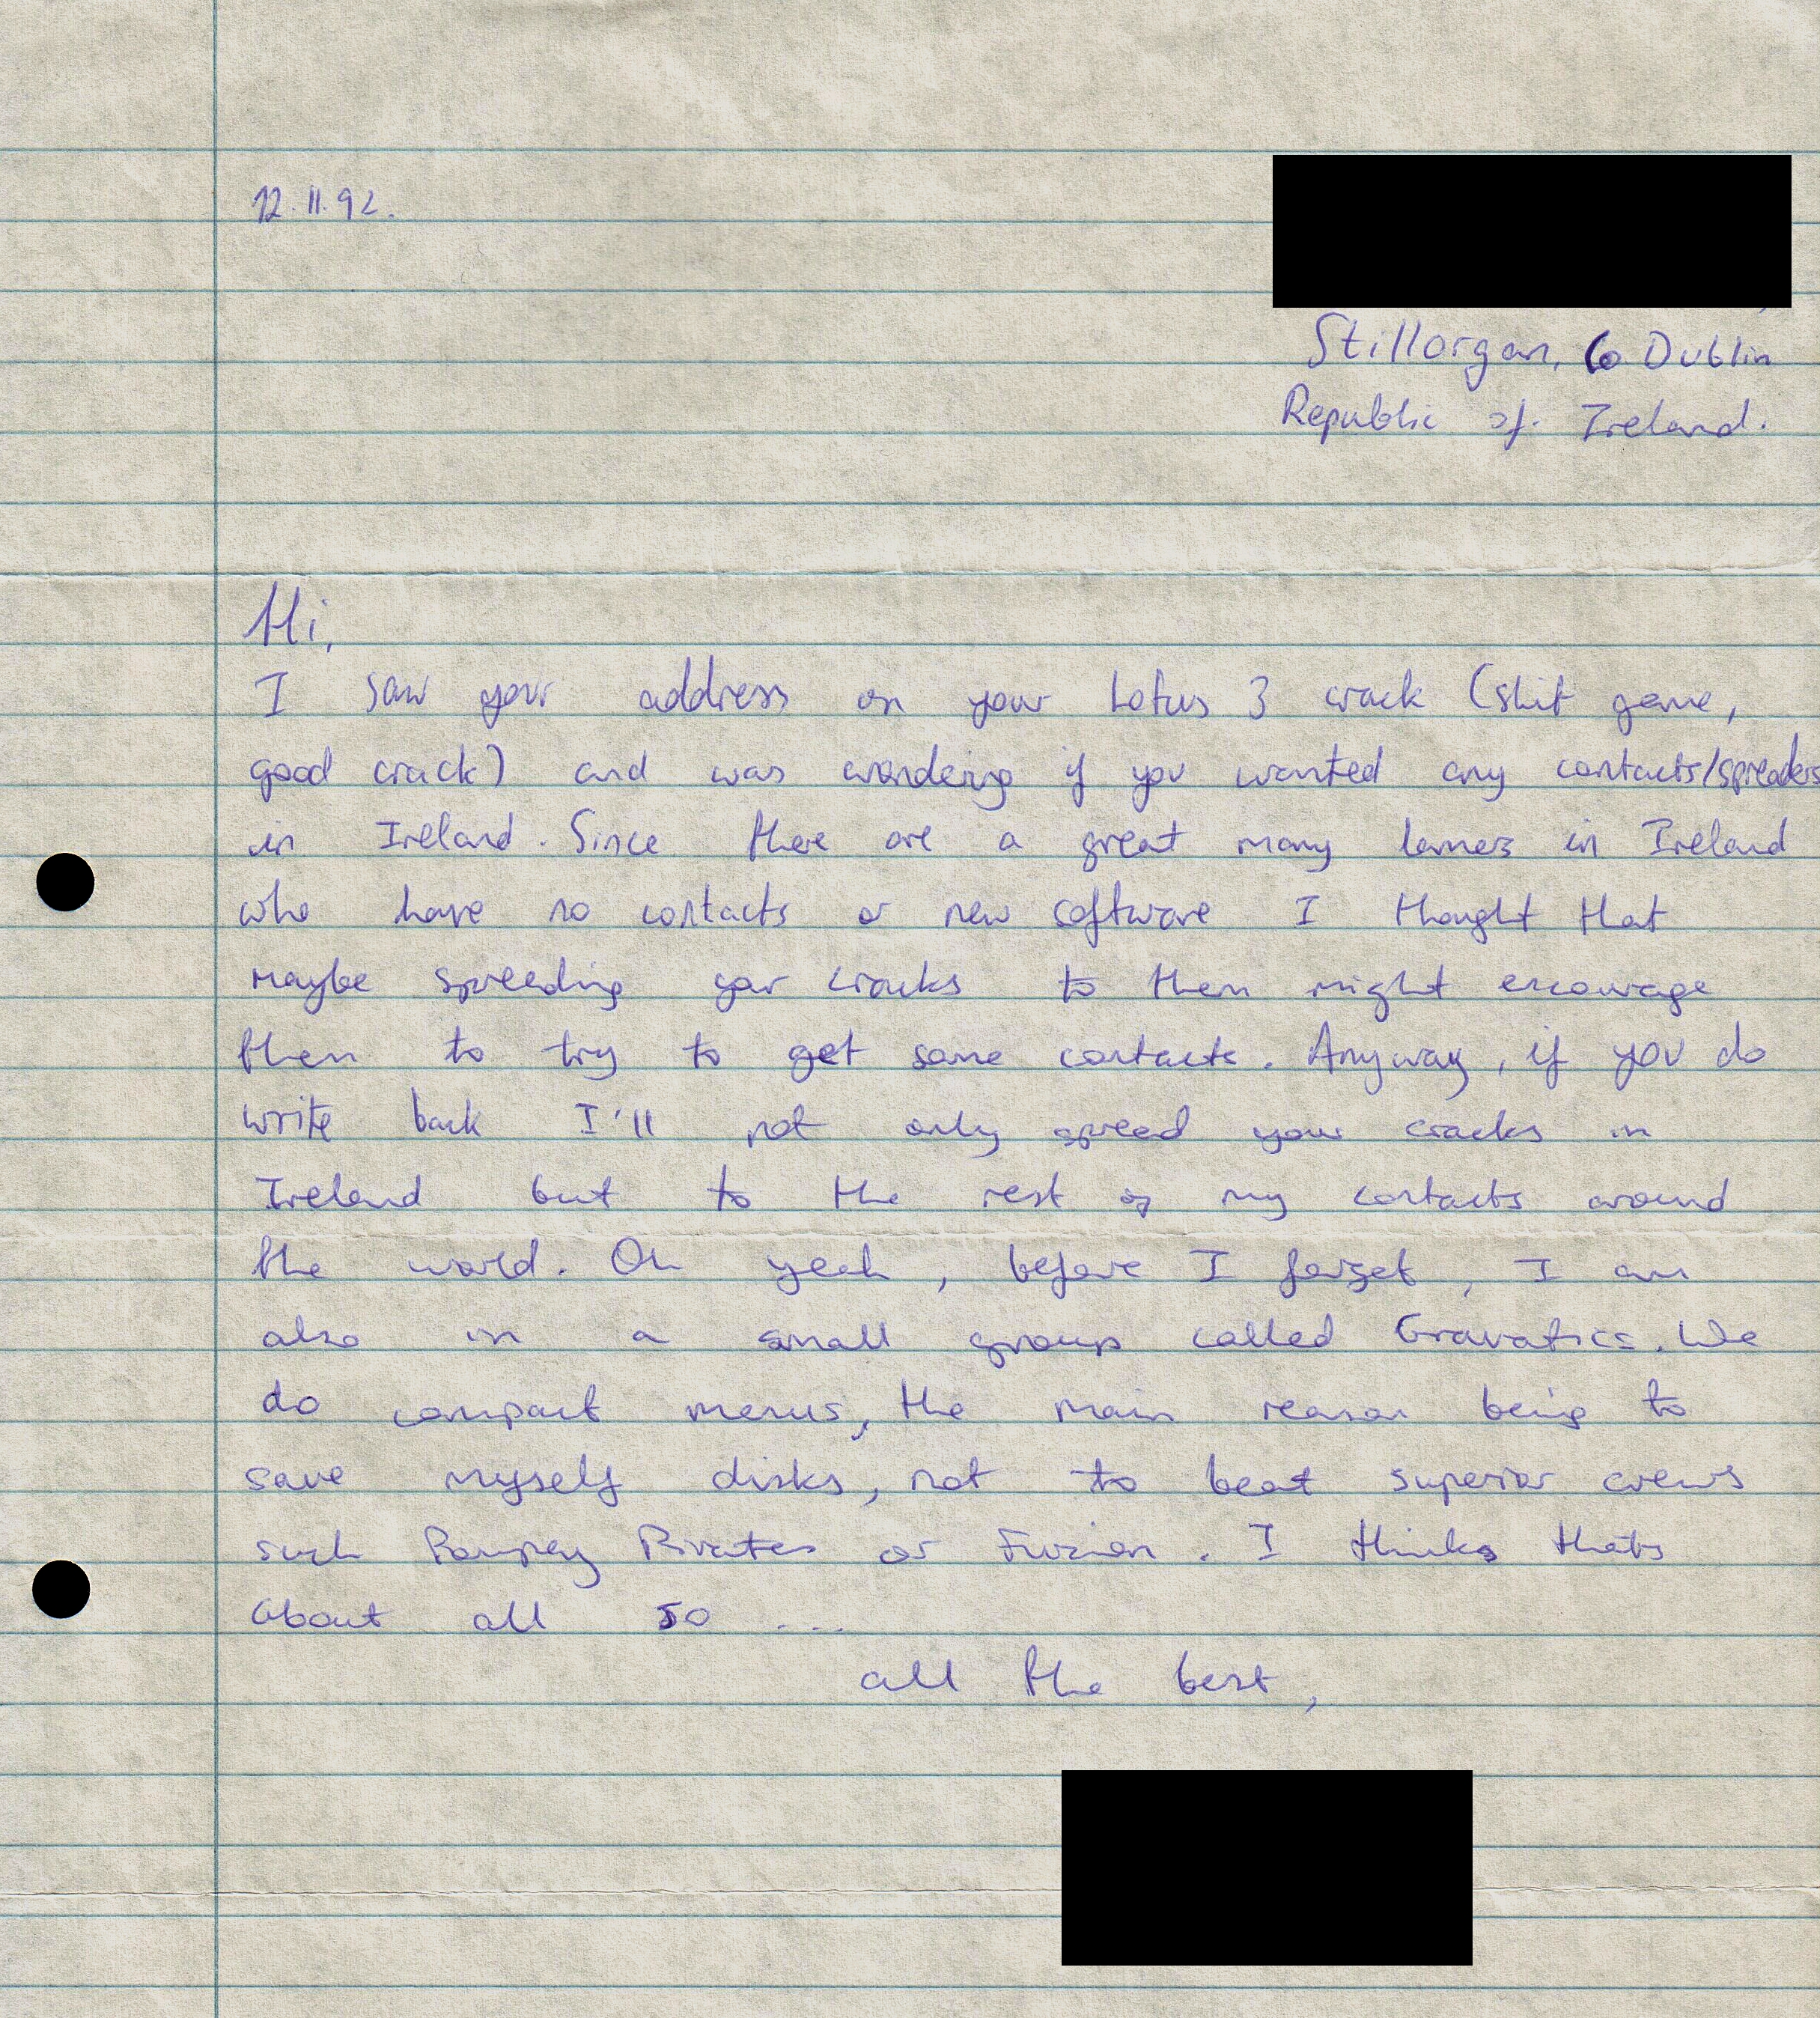 12.11.92.
Stillorgan, Co Dublin
Republic of Ireland.
Hi,
I saw your address on your Lotus 3 crack (shit game,
good crack) and was wondering if you wanted any contacts/spreaders
in Ireland. Since there are a great many lamers in Ireland
who have no contacts or new software I thought that
maybe spreading your cracks to them might encourage
them to try to get some contacts. Anyway, if you do
write back I'll not only spread your cracks in
Ireland but to the rest of my contacts around
the world. Oh yeah, before I forget, I am
also in a small group called Gravatics. We
do compact menus, the main reason being to
save myself disks, not to beat superior crews
such Pompey Pirates or Fuzion. I thinks thats
about all so ...
all the best,